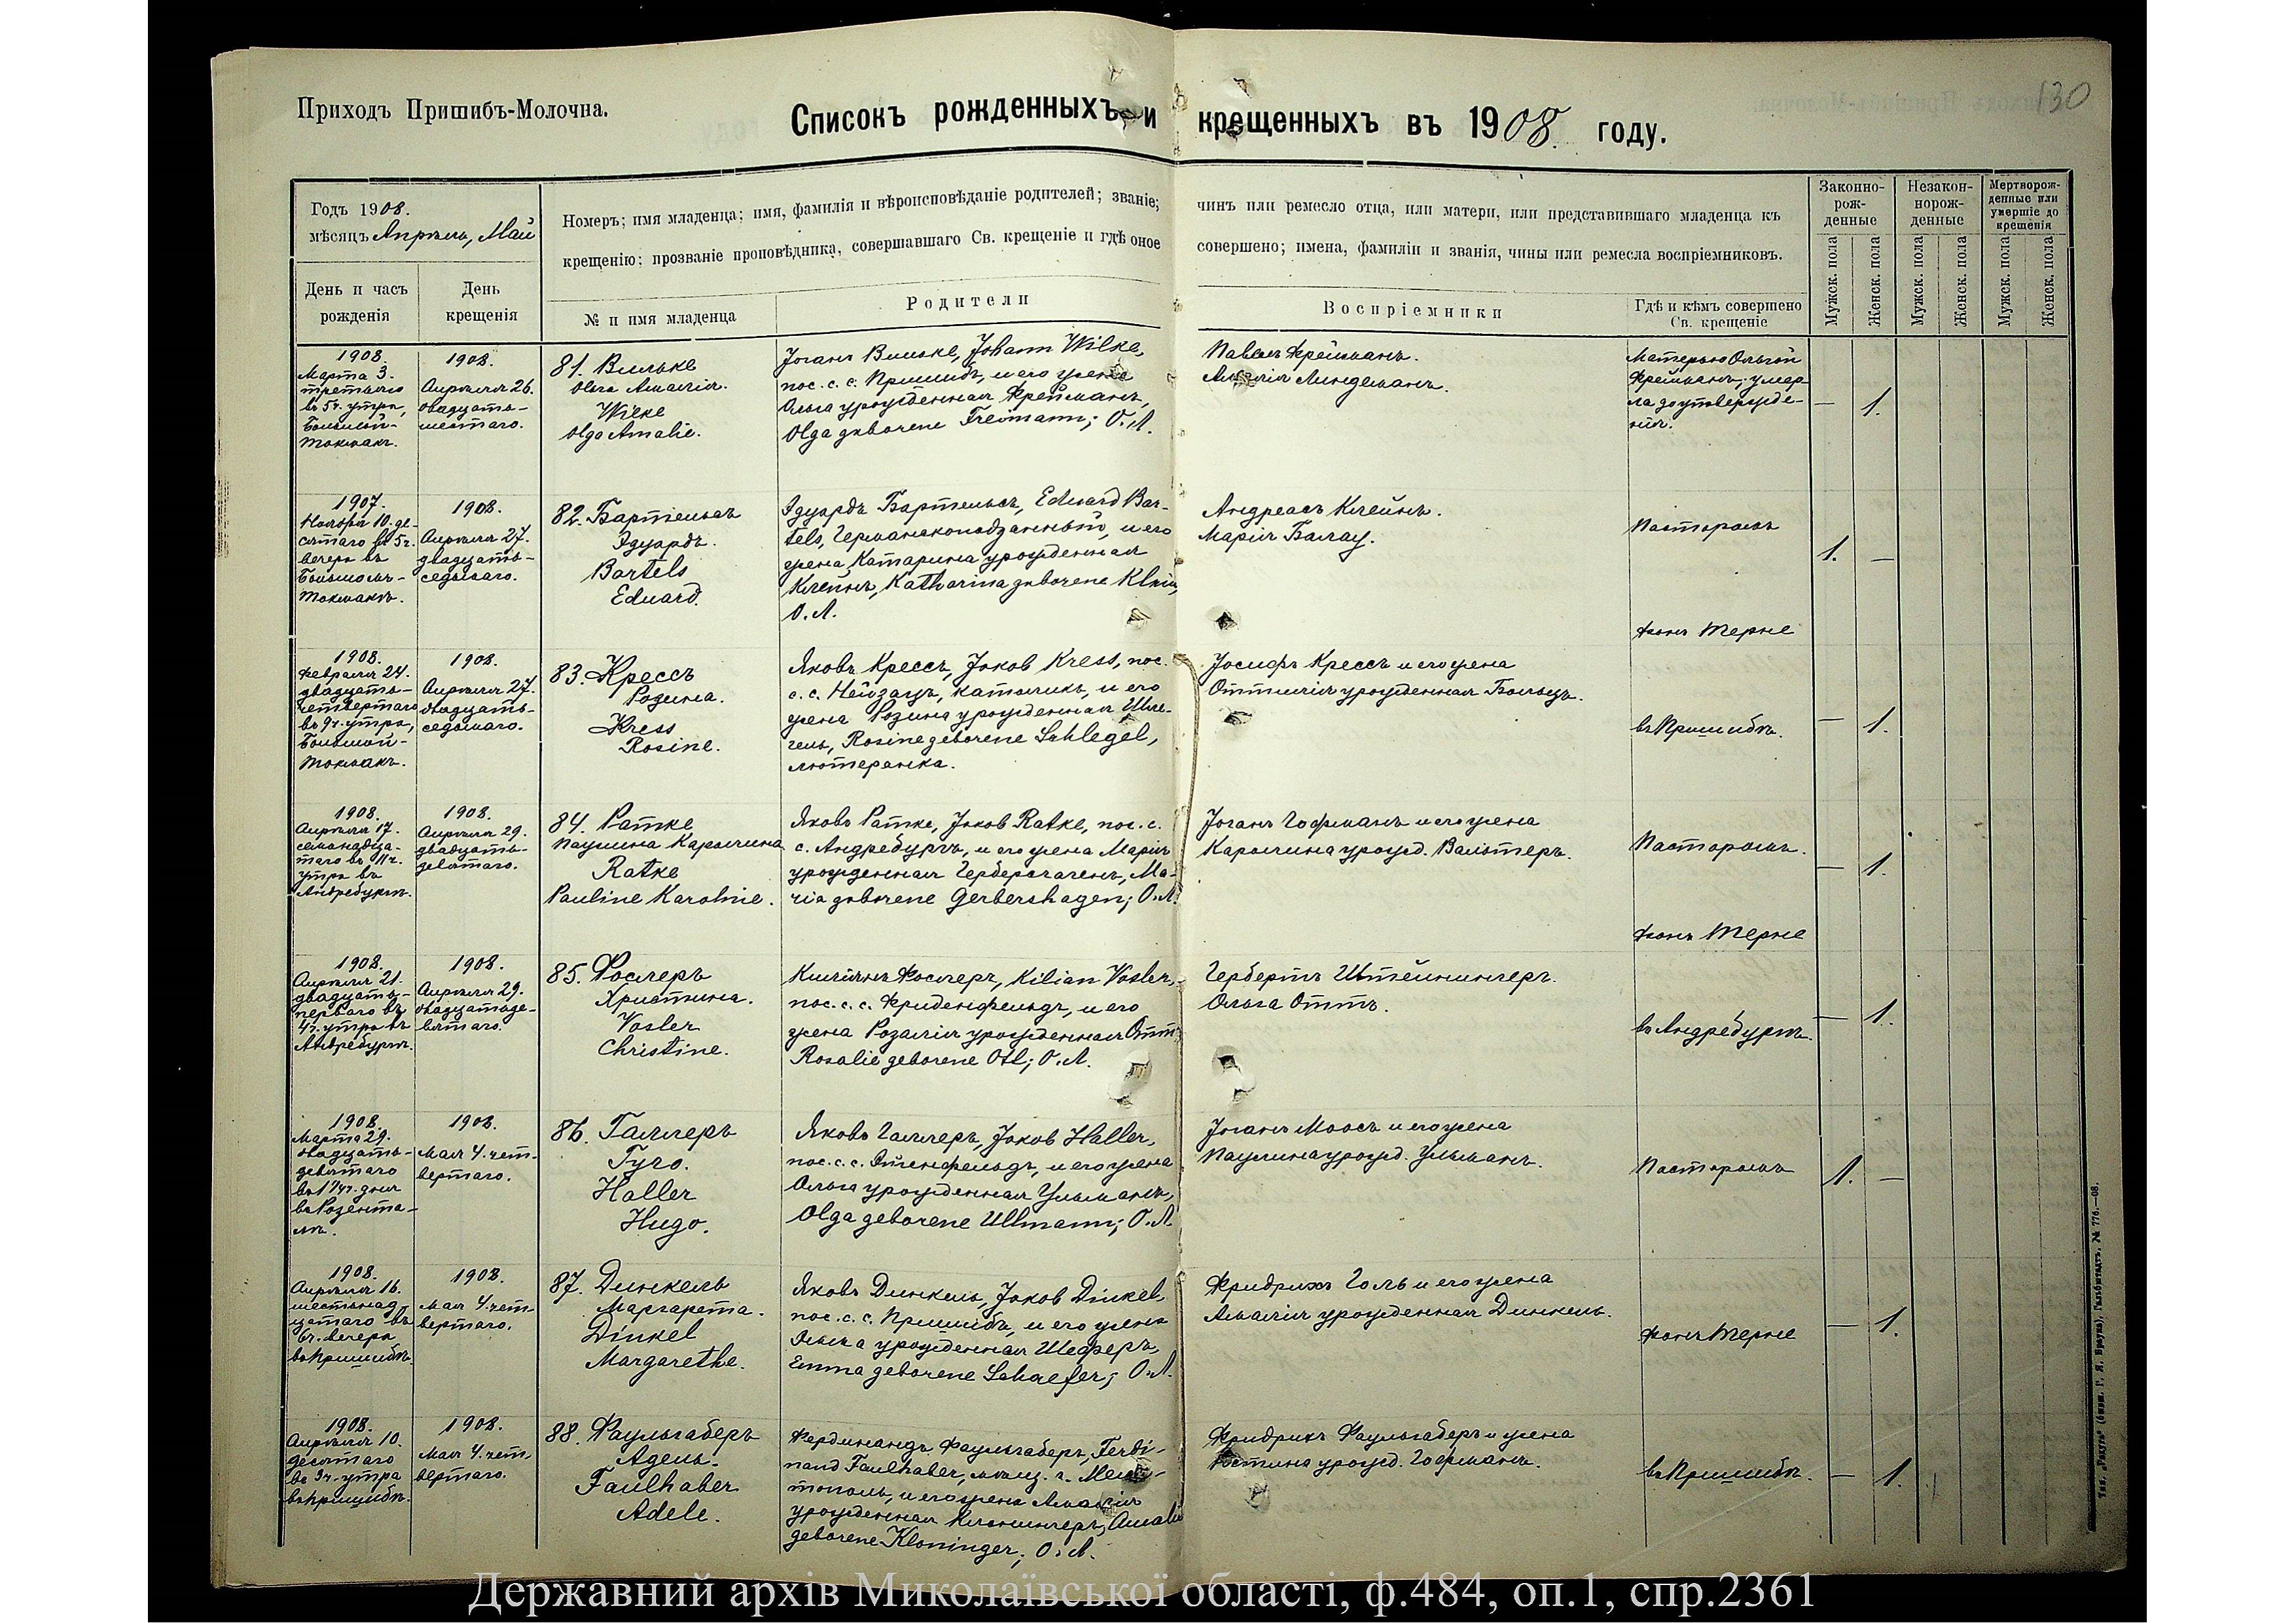 Приходъ Пришибъ-Молочна.
130
Списокъ рожденныхъ и крещенныхъ въ 1908. году.
Годъ 1908.
мѣсяцъ Апрѣль, Май
Номеръ; имя младенца; имя, фамилія и вѣроисповѣданіе родителей; званіе; чинъ или ремесло отца, или матери, или представившаго младенца къ
крещенію; прозваніе проповѣдника, совершавшаго Св. крещеніе и гдѣ оное совершено; имена, фамиліи и званія, чины или ремесла воспріемниковъ.
Законно-
рож-
денные
Незакон-
норож-
денные
Мертворож-
денные или
умершіе до
крещенія
День и часъ
рожденія
День
крещенія
№ и имя младенца
Родители
Воспріемники
Гдѣ и кѣмъ совершено
Св. крещеніе
Мужск. пола
Женск. пола
Мужск. пола
Женск. пола
Мужск. пола
Женск. пола
1908.
Марта 3.
третьяго
въ 5 ч. утра,
Большой-
Токмакъ.
1908.
Апрѣля 26.
двадцать-
шестаго.
81. Вильке
Ольга Амалія.
Wilke
Olga Amalie.
Іоганъ Вильке, Johann Wilke,
пос. с. с. Пришибъ, и его жена
Ольга урожденная Фрейманъ,
Olga geborene Freimann; О. Л.
Павелъ Фрейманъ.
Амалія Линдеманъ.
Матерью Ольгой
Фрейманъ; умер-
ла до утвержде-
нія.
— 1.
1907.
Ноября 10. де-
сятаго въ 5 ч.
вечера въ
Большомъ-
Токмакѣ.
1908.
Апрѣля 27.
двадцать-
седьмаго.
82. Бартельсъ
Эдуардъ.
Bartels
Eduard.
Эдуардъ Бартельсъ, Eduard Bar-
tels, Германскоподданный, и его
жена Катарина урожденная
Клейнъ, Katharina geborene Klein,
О. Л.
Андреасъ Клейнъ.
Марія Балау.
Пасторомъ
фонъ Терне
1. —
1908.
Февраля 24.
двадцать-
четвертаго
въ 9 ч. утра,
Большой-
Токмакъ.
1908.
Апрѣля 27.
двадцать-
седьмаго.
83. Крессъ
Розина.
Kress
Rosine.
Яковъ Крессъ, Jakob Kress, пос.
с. с. Нейзацъ, католикъ, и его
жена Розина урожденная Шле-
гель, Rosine geborene Schlegel,
лютеранка.
Іосифъ Крессъ и его жена
Оттилія урожденная Больцъ.
въ Пришибѣ.
— 1.
1908.
Апрѣля 17.
семнадца-
таго въ 11 ч.
утра въ
Андребургѣ.
1908.
Апрѣля 29.
двадцать-
девятаго.
84. Ратке
Паулина Каролина
Ratke
Pauline Karoline.
Яковъ Ратке, Jakob Ratke, пос. с.
с. Андребургъ, и его жена Марія
урожденная Герберсгагенъ, Ma-
ria geborene Gerbershagen; О. Л.
Іоганъ Гофманъ и его жена
Каролина урожд. Вальтеръ.
Пасторомъ.
фонъ Терне
— 1.
1908.
Апрѣля 21.
двадцать-
перваго въ
4 ч. утра въ
Андребургѣ.
1908.
Апрѣля 29.
двадцатаде-
вятаго.
85. Фослеръ
Христина.
Vosler
Christine.
Киліянъ Фослеръ, Kilian Vosler,
пос. с. с. Фриденфельдъ, и его
жена Розалія урожденная Оттъ,
Rosalie geborene Ott; О. Л.
Гербертъ Штейнингеръ.
Ольга Оттъ.
въ Андребургѣ.
— 1.
1908.
Марта 29.
двадцать-
девятаго
въ 1 ¼ ч. дня
въ Розента-
лѣ.
1908.
Мая 4. чет-
вертаго.
86. Галлеръ
Гуго.
Haller
Hugo.
Яковъ Галлеръ, Jakob Haller,
пос. с. с. Эйгенфельдъ, и его жена
Ольга урожденная Ульманъ,
Olga geborene Ullmann; О. Л.
Іоганъ Моосъ и его жена
Паулина урожд. Ульманъ.
Пасторомъ
1. —
1908.
Апрѣля 16.
шестьнад-
цатаго въ
6 ч. вечера
въ Пришибѣ.
1908.
Мая 4. чет-
вертаго.
87. Динкель
Маргарета.
Dinkel
Margarethe.
Яковъ Динкель, Jakob Dinkel,
пос. с. с. Пришибъ, и его жена
Эмма урожденная Шеферъ,
Emma geborene Schaefer; О. Л.
Фридрихъ Голь и его жена
Амалія урожденная Динкель.
фонъ Терне
— 1.
1908.
Апрѣля 10.
десятаго
въ 3 ч. утра
въ Пришибѣ.
1908.
Мая 4. чет-
вертаго.
88. Фаульгаберъ
Адель.
Faulhaber
Adele.
Фердинандъ Фаульгаберъ, Ferdi-
nand Faulhaber, мѣщ. г. Мели-
тополь, и его жена Амалія
урожденная Клонингеръ, Amalie
geborene Kloninger; О. Л.
Фридрихъ Фаульгаберъ и жена
урожд. Гофманъ.
въ Пришибѣ.
— 1.
Тип. „Радуга“ (бывш. Г. Я. Брауна), Гальбштадтъ. № 776.—08.
Державний архів Миколаївської області, ф.484, оп.1, спр.2361